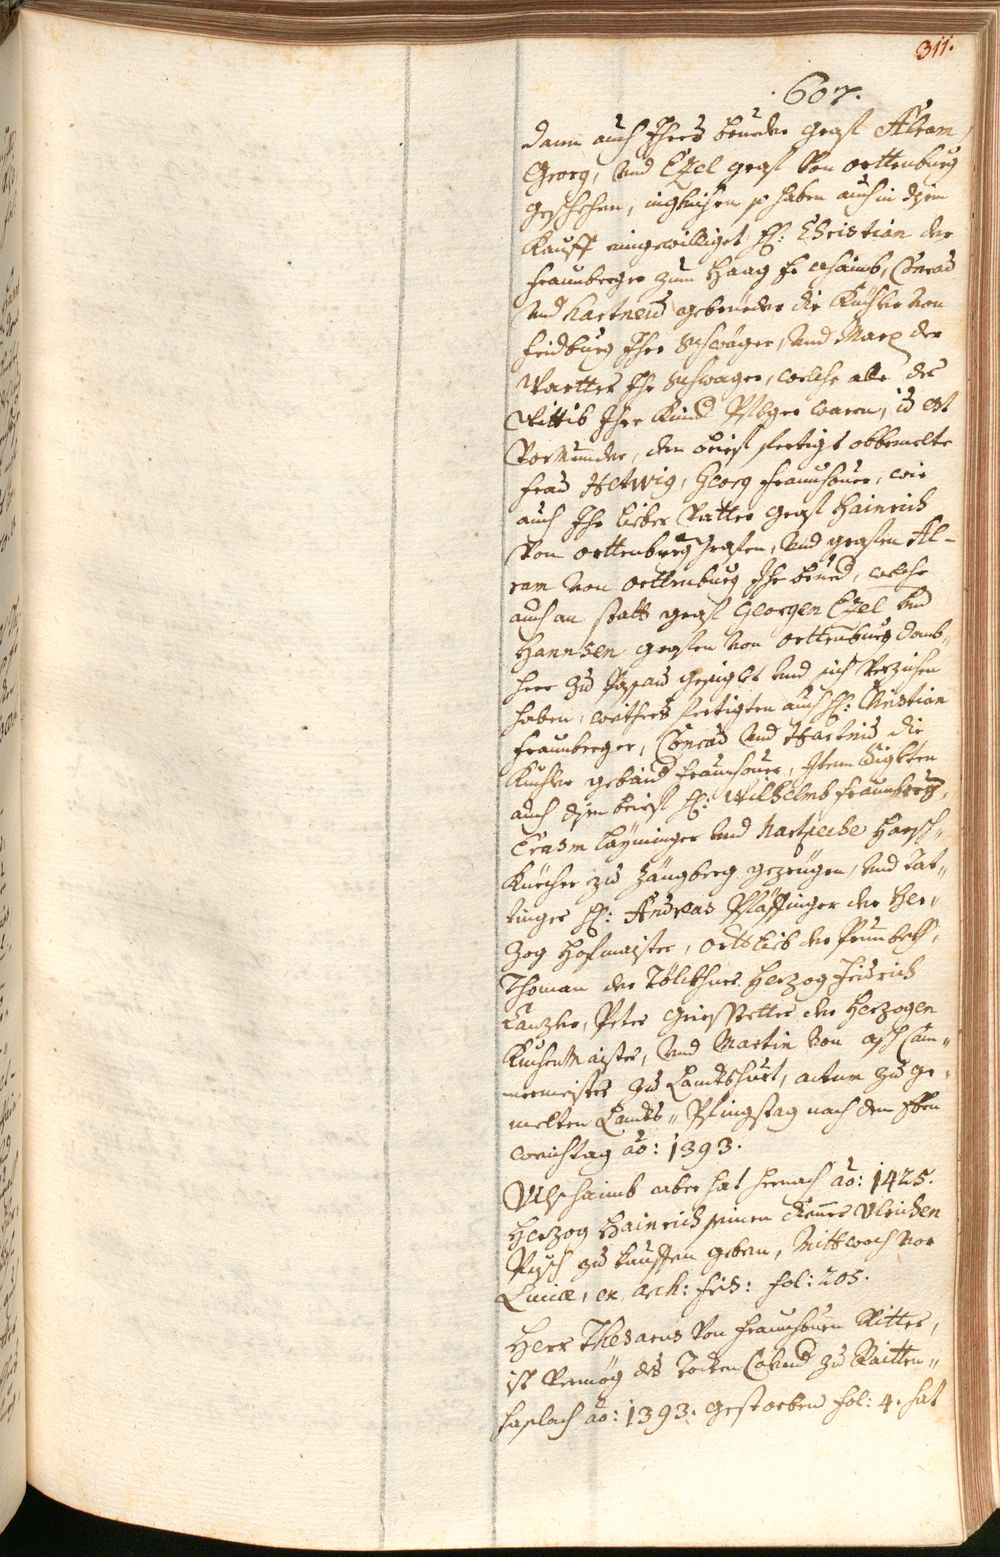 311.
607.
dann auch Ihres brueder graf Alram,
Georg, und Ezel graf von orttenburg
geschehen, ingleichen so haben auch in disen
Kauff eingewilliget H: Christian der
fraunberger zum Haag, Conrad
und Hartneid gebrueder die Kuchler von
fridburg Ihr schwäger, und Marx der
Vatter Ihr schwager, welche alle des
Vittib Ihre Kind Pfleger waren, id est
Vormunder, den brief fertigt obbemelte
frau Hedwig, Georg fraunhover, wie
auch Ihr lieber Vatter graf Hainrich
von orttenburg, und grafen Al-
ram von orttenburg Ihr brued, welche
auch an statt graf Georgen Ezel und
Hannsen grafen von orttenburg domb-
herr zu Passau gesiglet und sich verzichen
haben, weithers fertigten auch H: Christian
fraunberger, Conrad und Hartnid die
Kuchler gebrüed fraunhover, Item Siglten
auch disen brief H: Wilhelmb fraunberg,
Erasm layminger und Hartprecht Harsch-
Kürcher zu Zängberg gezeugen, und tät-
tinger H: Andreas Pläffinger der Her-
zog Hofmaister, Orttlieb der
Thoman der Herzog fridrich
Canzler, Peter Griesstetter der Herzogen
KuchenMaister, und Martin von asch Cam-
mermeister zu Landshuet, actum zu ge-
melten Lands- Pfingstag nach dem Eben
weichtag ao: 1393.
aber hat hernach ao: 1425.
Herzog Hainrich seinem diener Ulrichen
zu kauffen geben, Mittwoch vor
Luciæ, ex arch: fris: fol: 205.
Herr Thesarus von fraunhoven Ritter,
ist vermög des Todten Calend zu Raitten-
haslach ao: 1393. gestorben fol: 4. hat